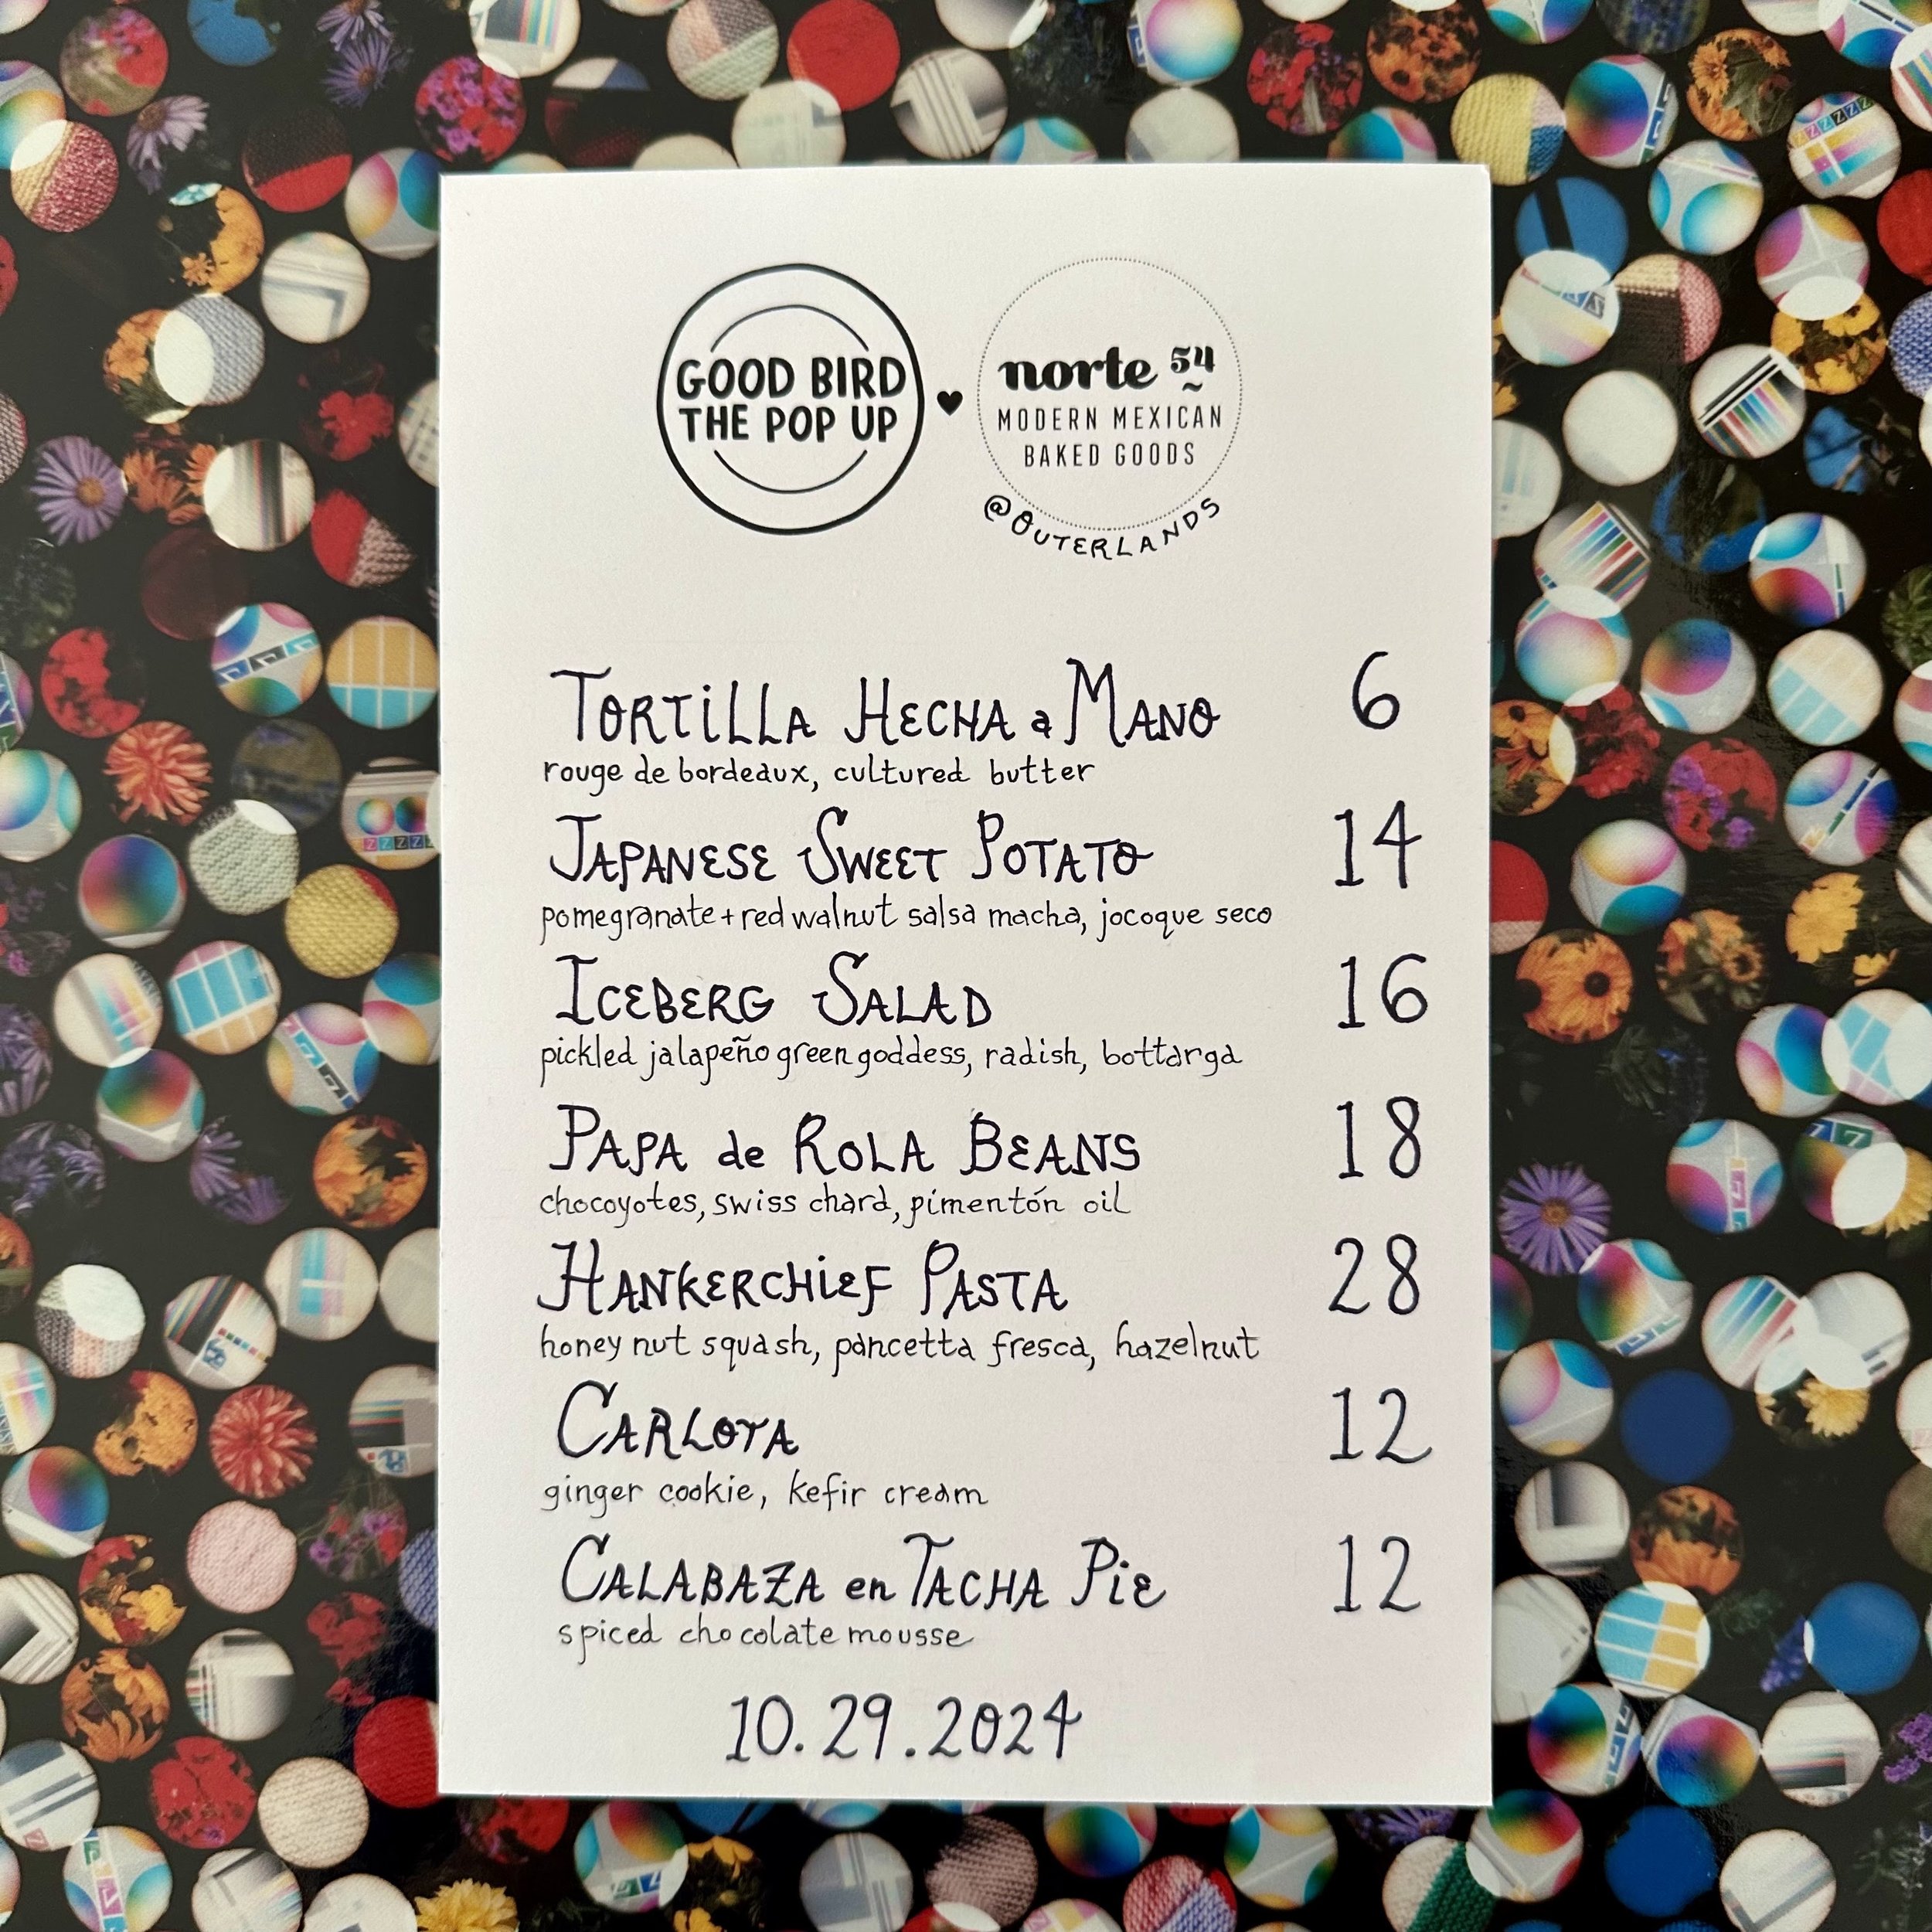 GOOD BIRD
THE POP UP
♥
norte 54
MODERN MEXICAN
BAKED GOODS
@OUTERLANDS
TORTILLA HECHA a MANO 6
rouge de bordeaux, cultured butter
JAPANESE SWEET POTATO 14
pomegranate + red walnut salsa macha, jocoque seco
ICEBERG SALAD 16
pickled jalapeño green goddess, radish, bottarga
PAPA de ROLA BEANS 18
chocoyotes, swiss chard, pimentón oil
HANKERCHIEF PASTA 28
honey nut squash, pancetta fresca, hazelnut
CARLOTA 12
ginger cookie, kefir cream
CALABAZA en TACHA PIE 12
spiced chocolate mousse
10.29.2024